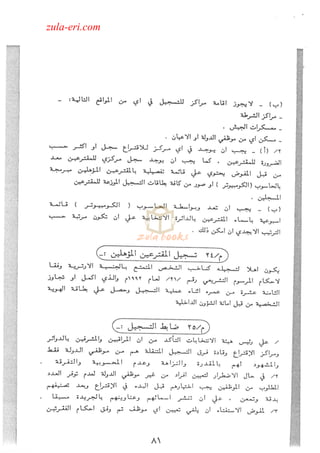 zula-eri.com
(ب) - لا يجوز اقامة مراكز للتسجيل في اي من المواقع التالية: -
- مراكز الشرطة
- معسكرات الجيش .
- سكن اي من موظفي الدولة او الاعيان .
٢/ (أ) - يجب ان يوجد في اي مركز للاقتراع سجل او اكثر حسب
الضرورة للمقترعين . كما يجب ان يوجد سجل مركزي للمقترعين معد
من قبل المفوض يحتوي على قائمة تفصيلية بالمقترعين المؤهلين مبرمجة
بالحاسوب (الكومبيوتر) او صور من كافة بطاقات التسجيل الموزعة للمقترعين
المسجلين .
(ب) - يجب ان تعد بواسطة الحاسوب ( الكومبيوتر ) قائمة
اسبوعية باسماء المقترعين بالدائرة الانتخابية على ان تكون مرتبة حسب
الترتيب الابجدي ان امكن ذلك .
zula books
م/٢٤ تسجيل المقترعين المؤهلين :-
يكون اهلا لتسجيله كناخب الشخص المتمتع بالجنسية الارترية وفقا
لاحكام المرسوم التشريعي رقم ٢١/ لعام ١٩٩٢م والذي اكمل او تجاوز
الثامنة عشرة من عمره اثناء مدة التسجيل وحصل على بطاقة الهوية
الشخصية من قبل امانة الشؤون الداخلية
م/٢٥ ضابط التسجيل :-
١/ على رئيس هيئة الانتخابات التأكد من ان المراقبين والمشرفين بالدوائر
ومراكز الاقتراع وقادة فرق التسجيل المتنقلة هم من موظفي الدولة فقط
والمشهود لهم بالمقدرة والنزاهة وعدم المحسوبية والتفرقة .
٢/ في حال الاضطرار لتعيين افراد من غير موظفي الدولة لعدم توفر العدد
المطلوب من الموظفين يجب اختيارهم قبل البدء في الاقتراع وبعد تصنيفهم
بدقة وتمعن . على ان تنشر اسمائهم وعناوينهم بالجريدة مسبقا .
٣/ للمفوض الاستثناء ان يلغي تعيين اي موظف تم وفق احكام الفقرتين
٨١